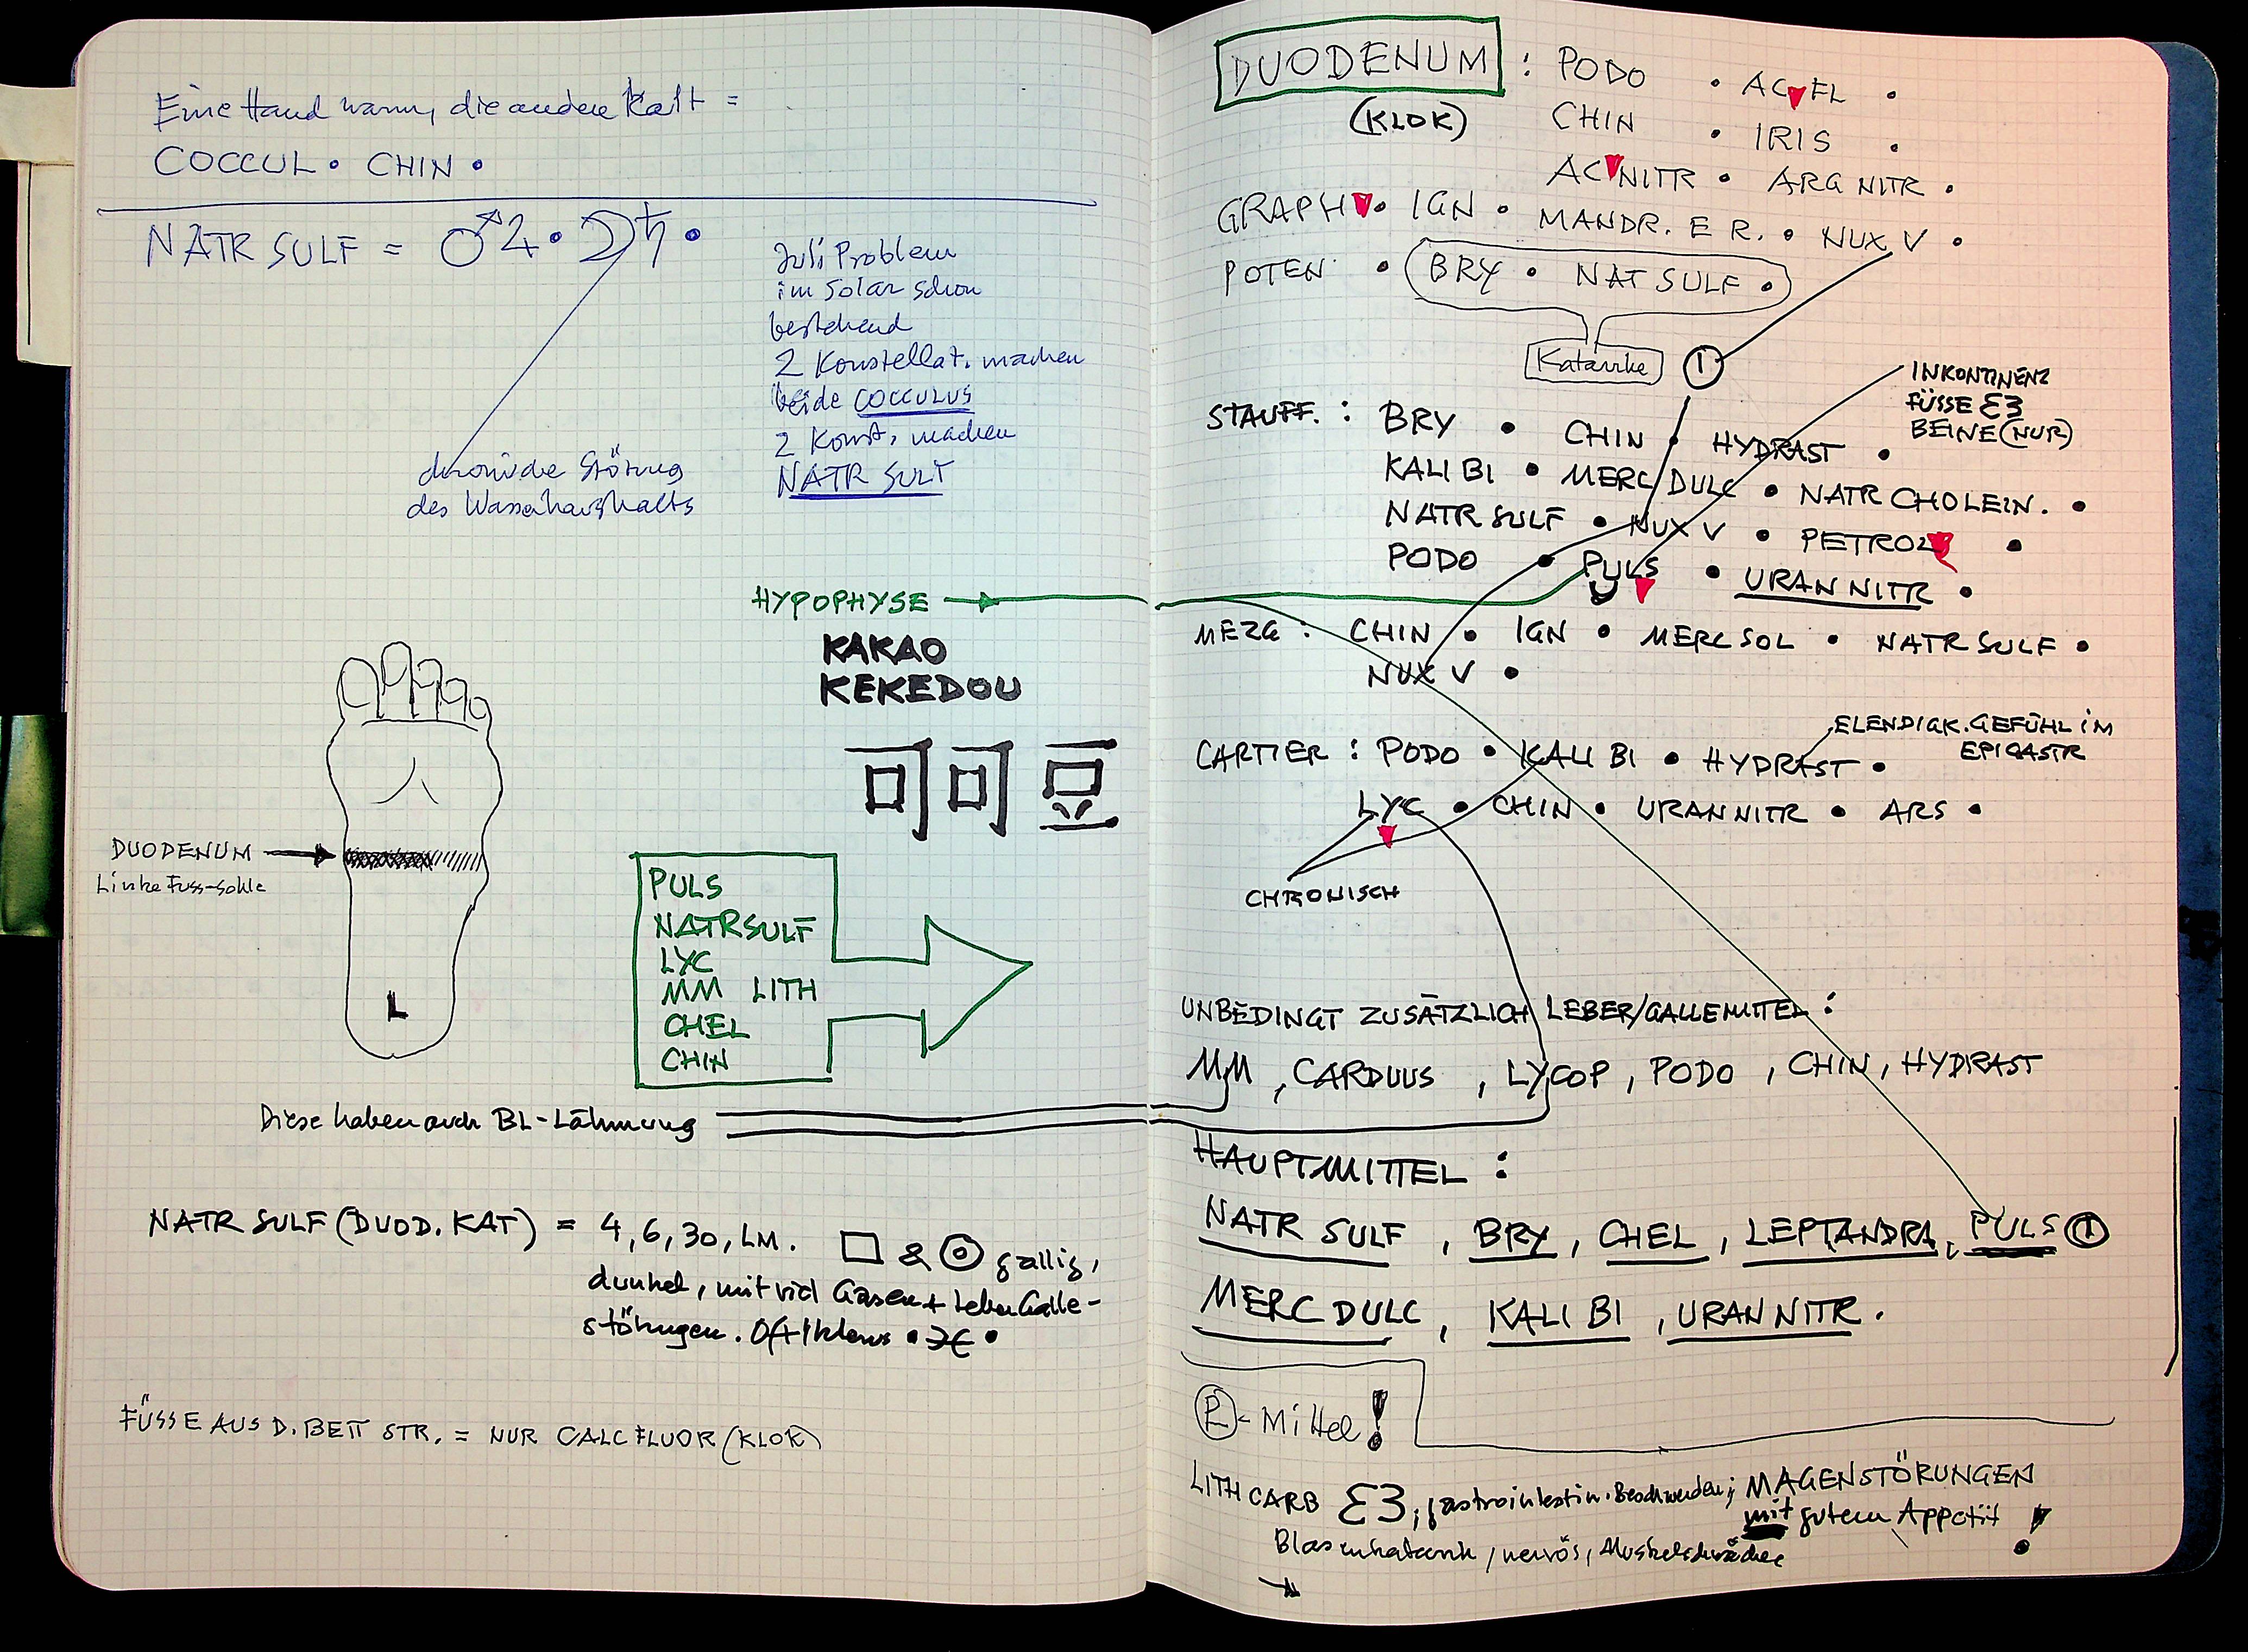 Eine Hand warm, die andere kalt =
COCCUL • CHIN •
NATR SULF = ♂♃ • ☽♄ •
Juli Problem
im Solar schon
bestehend
2 Konstellat. machen
beide COCCULUS
2 Konst. machen
NATR SULF
chronische Störung
des Wasserhaushalts
HYPOPHYSE
KAKAO
KEKEDOU
可可豆
DUODENUM
Linke Fuss-Sohle
L
PULS
NATR SULF
LYC
MM LITH
CHEL
CHIN
Diese haben auch BL-Lähmung
NATR SULF (DUOD. KAT) = 4, 6, 30, LM. □ & ⊙ gallig,
dunkel, mit viel Gasen + Leber Galle-
störungen. Oft
FÜSSE AUS D. BETT STR. = NUR CALC FLUOR (KLOK)
DUODENUM : PODO • AC FL •
(KLOK) CHIN • IRIS •
AC NITR • ARG NITR •
GRAPH • IGN • MANDR. E R. • NUX V •
POTEN • BRY • NAT SULF •
Katarrhe 1
INKONTINENZ
FÜSSE Ɛ3
BEINE (NUR)
STAUFF. : BRY • CHIN • HYDRAST •
KALI BI • MERC DULC • NATR CHOLEIN. •
NATR SULF • NUX V • PETROL •
PODO • PULS • URAN NITR •
MEZG : CHIN • IGN • MERC SOL • NATR SULF •
NUX V •
ELENDIGK. GEFÜHL IM
EPIGASTR
CARTIER : PODO • KALI BI • HYDRAST •
LYC • CHIN • URAN NITR • ARS •
CHRONISCH
UNBEDINGT ZUSÄTZLICH LEBER/GALLEMITTEL :
MM, CARDUUS, LYCOP, PODO, CHIN, HYDRAST
HAUPTMITTEL :
NATR SULF, BRY, CHEL, LEPTANDRA, PULS 1
MERC DULC, KALI BI, URAN NITR.
-Mittel!
LITH CARB Ɛ3, gastrointestin. Beschwerden; MAGENSTÖRUNGEN
mit gutem Appetit !
Blasenkatarrh, nervös, Muskelschwäche